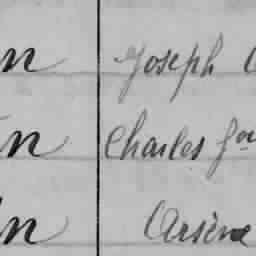 n Joseph
n Charles
n Arsène